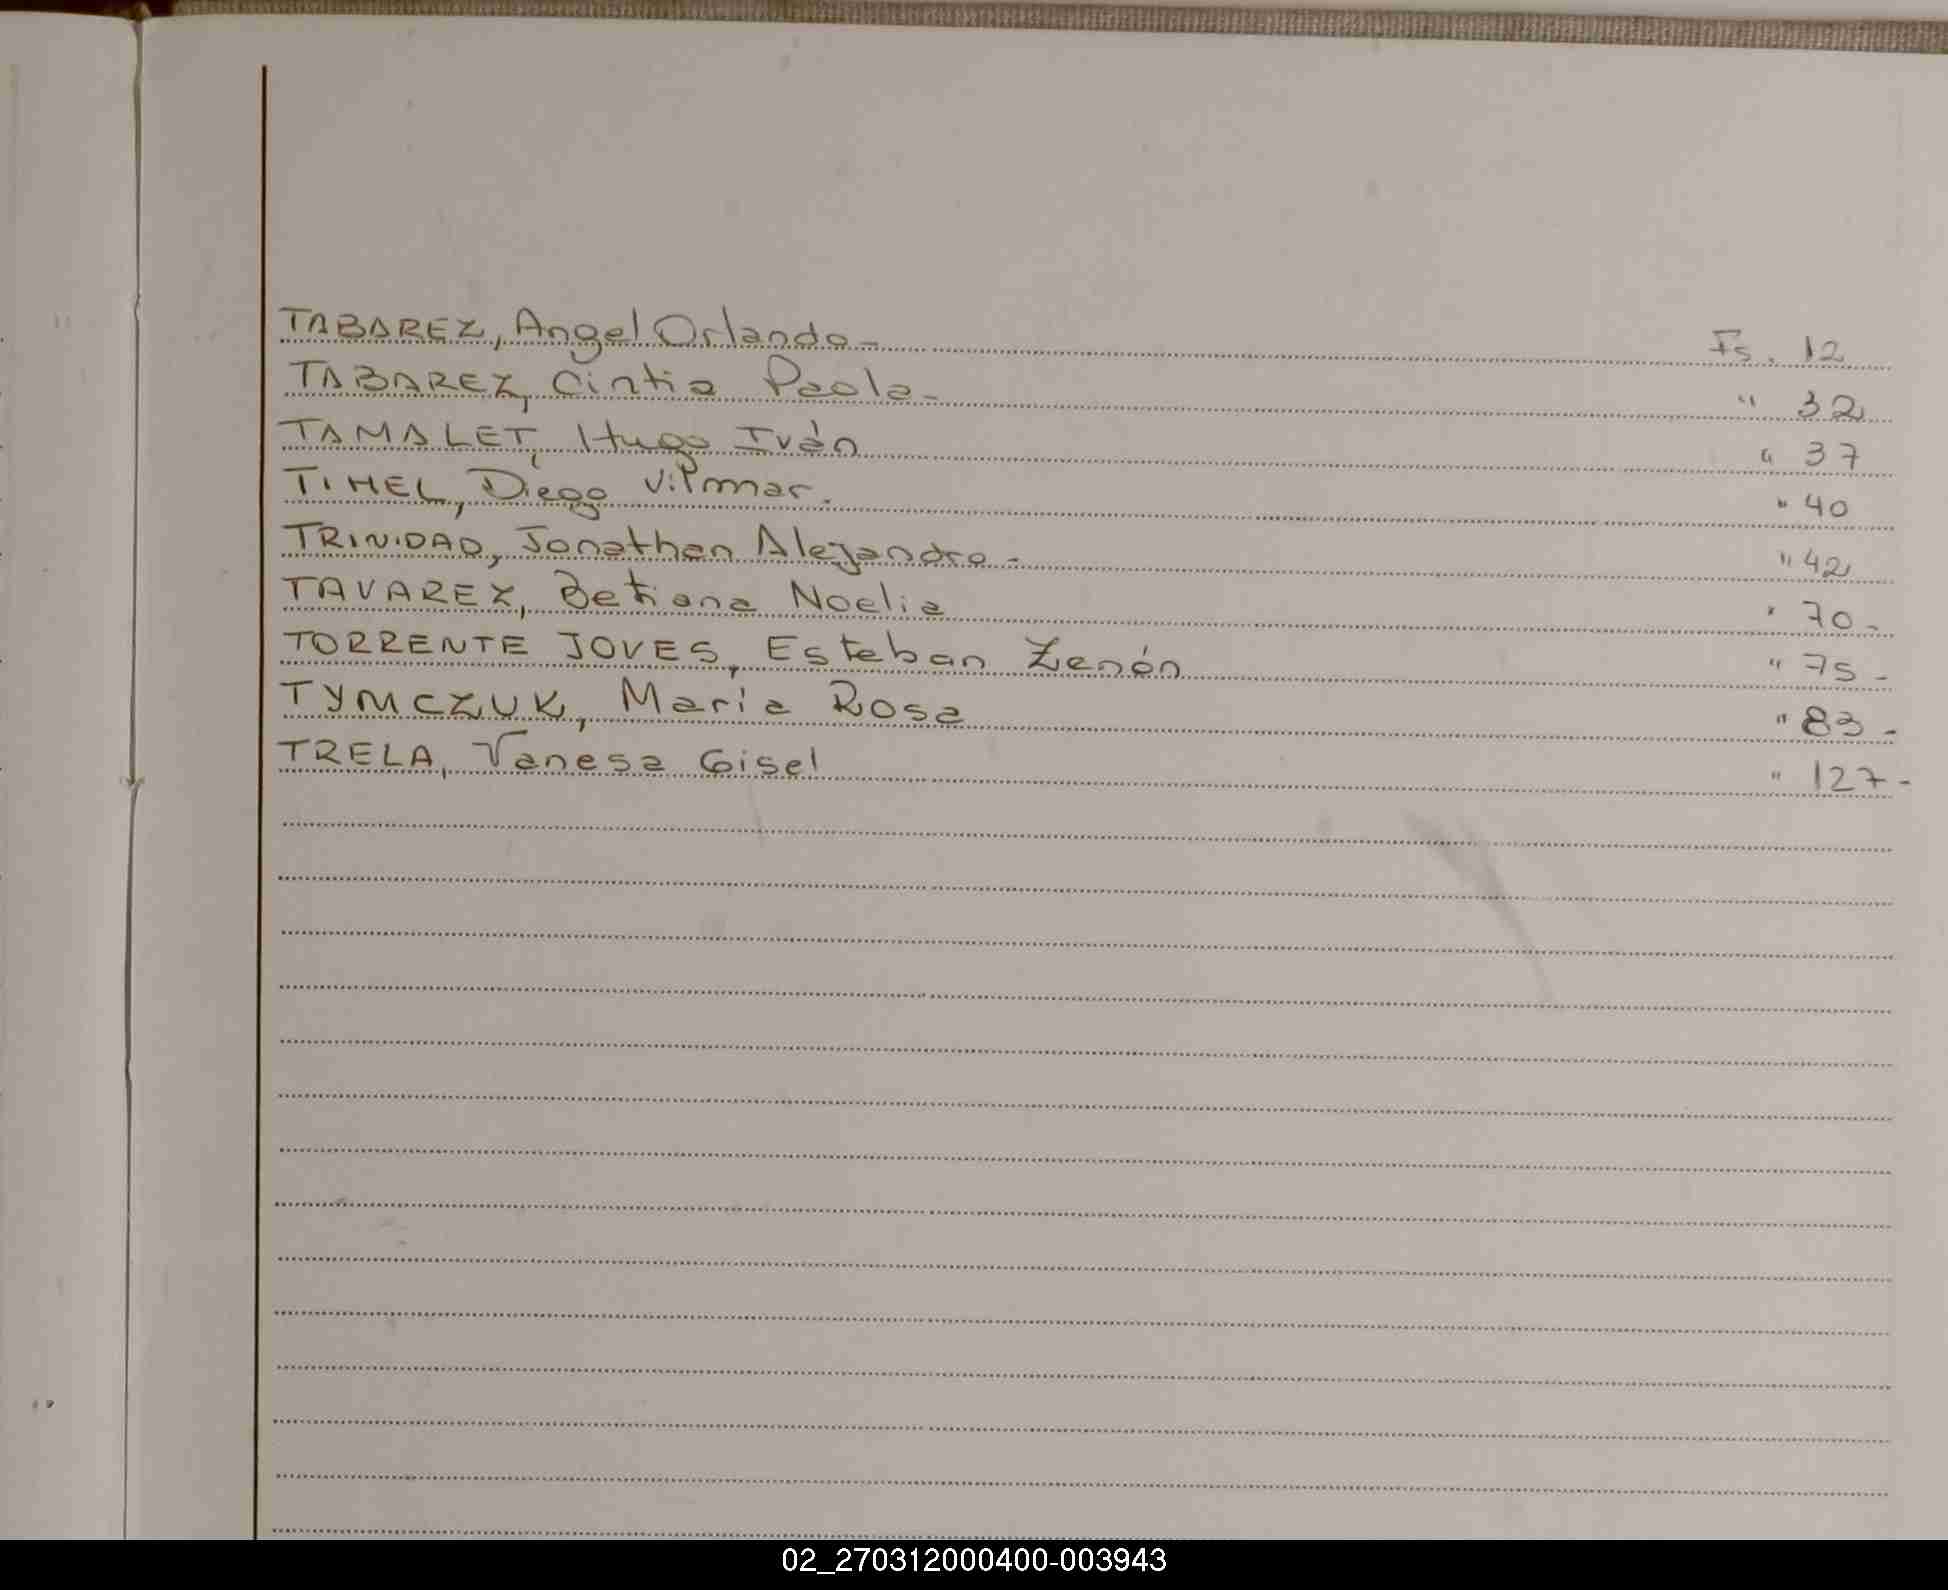 TABAREZ, Angel Orlando- Fs. 12
TABAREZ, Cintia Paola- " 32
TAMALET, Hugo Iván " 37
TIHEL, Diego Vilmar. " 40
TRINIDAD, Jonathan Alejandro- " 42
TAVAREZ, Betiana Noelia " 70-
TORRENTE JOVES, Esteban Zenón " 75-
TYMCZUK, María Rosa " 83-
TRELA, Vanesa Gisel " 127-
02_270312000400-003943